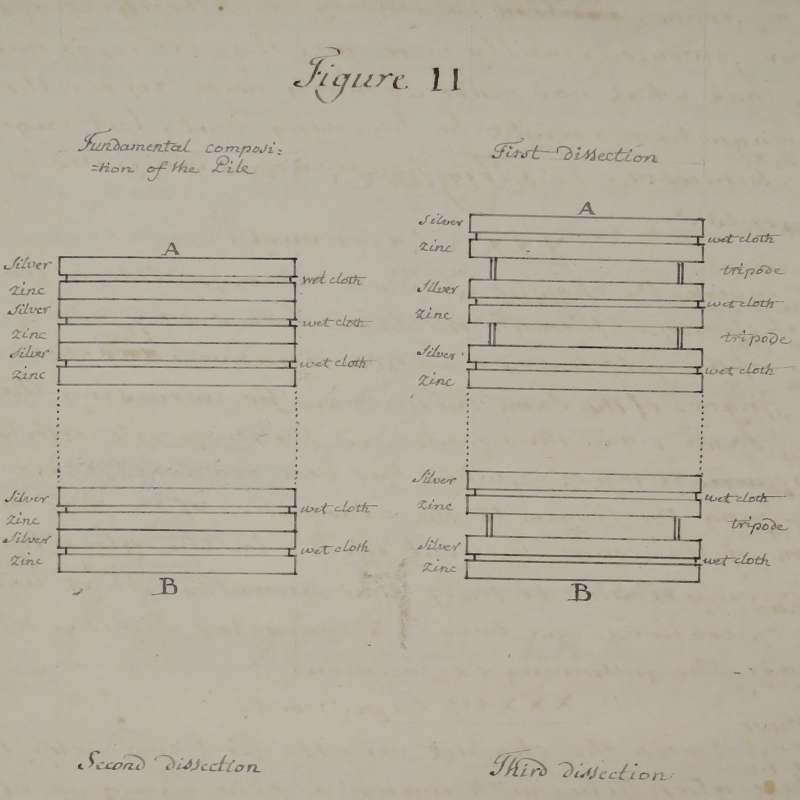 Figure 11
Fundamental composi=
=tion of the Pile
A
Silver
wet cloth
zinc
Silver
wet cloth
zinc
Silver
wet cloth
zinc
Silver
wet cloth
zinc
Silver
wet cloth
zinc
B
First dissection
A
Silver
wet cloth
zinc
tripode
Silver
wet cloth
zinc
tripode
Silver
wet cloth
zinc
Silver
wet cloth
zinc
tripode
Silver
wet cloth
zinc
B
Second dissection
Third dissection